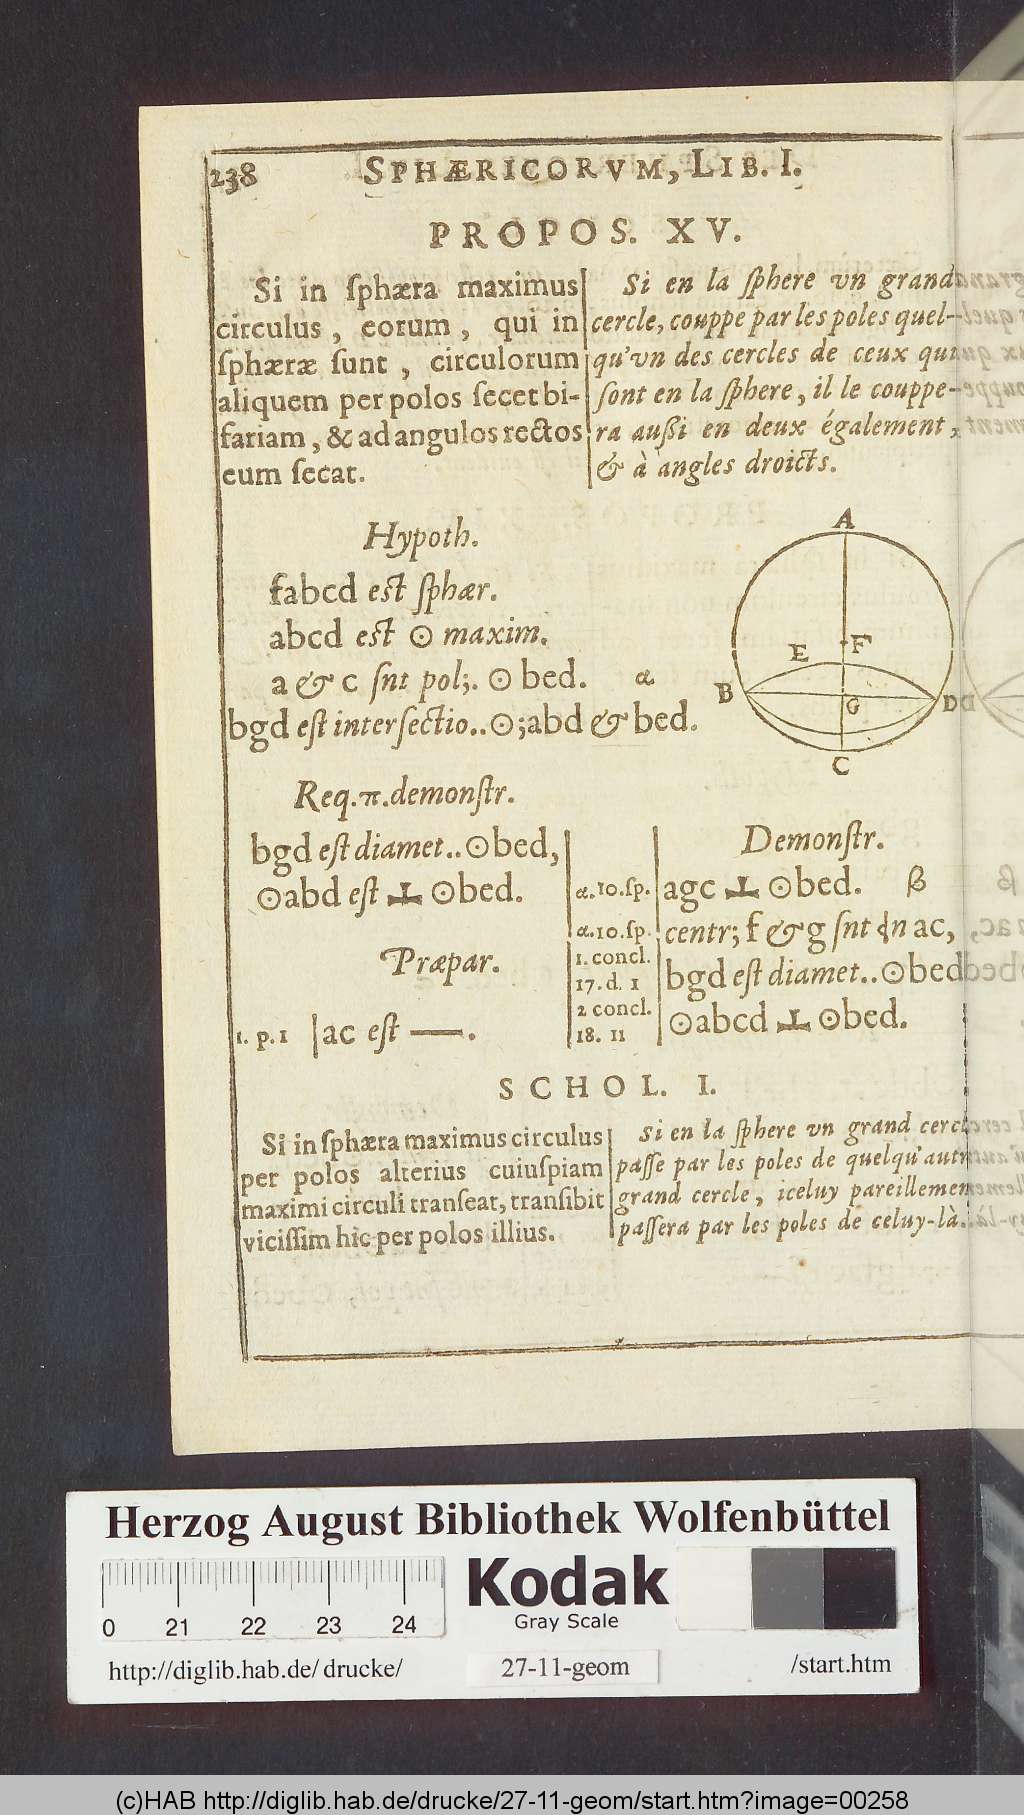 238 SPHÆRICORVM, LIB. I.
PROPOS. XV.
Si in sphæra maximus
circulus, eorum, qui in
sphæræ sunt, circulorum
aliquem per polos secet bi-
fariam, & ad angulos rectos
eum secat.
Si en la sphere vn grand
cercle, couppe par les poles quel-
qu'vn des cercles de ceux qui
sont en la sphere, il le couppe-
ra außi en deux également,
& à angles droicts.
Hypoth.
fabcd est sphær.
abcd est ⊙ maxim.
a & c snt pol;. ⊙ bed. α
bgd est intersectio..⊙;abd & bed.
A
E F
B G D
C
Req.π.demonstr.
bgd est diamet..⊙bed,
⊙abd est ⊥ ⊙bed.
Præpar.
1. p. 1 | ac est —.
Demonstr.
α.10.sp. | agc ⊥ ⊙bed. β
α.10.sp. | centr; f & g snt in ac,
1. concl.
17. d. 1 | bgd est diamet..⊙bed
2 concl.
18. 11 | ⊙abcd ⊥ ⊙bed.
SCHOL. I.
Si in sphæra maximus circulus
per polos alterius cuiuspiam
maximi circuli transeat, transibit
vicissim hic per polos illius.
Si en la sphere vn grand cercle
passe par les poles de quelqu'autre
grand cercle, iceluy pareillement
passera par les poles de celuy-là.
Herzog August Bibliothek Wolfenbüttel
0 21 22 23 24
Kodak
Gray Scale
http://diglib.hab.de/drucke/ 27-11-geom /start.htm
(c)HAB http://diglib.hab.de/drucke/27-11-geom/start.htm?image=00258